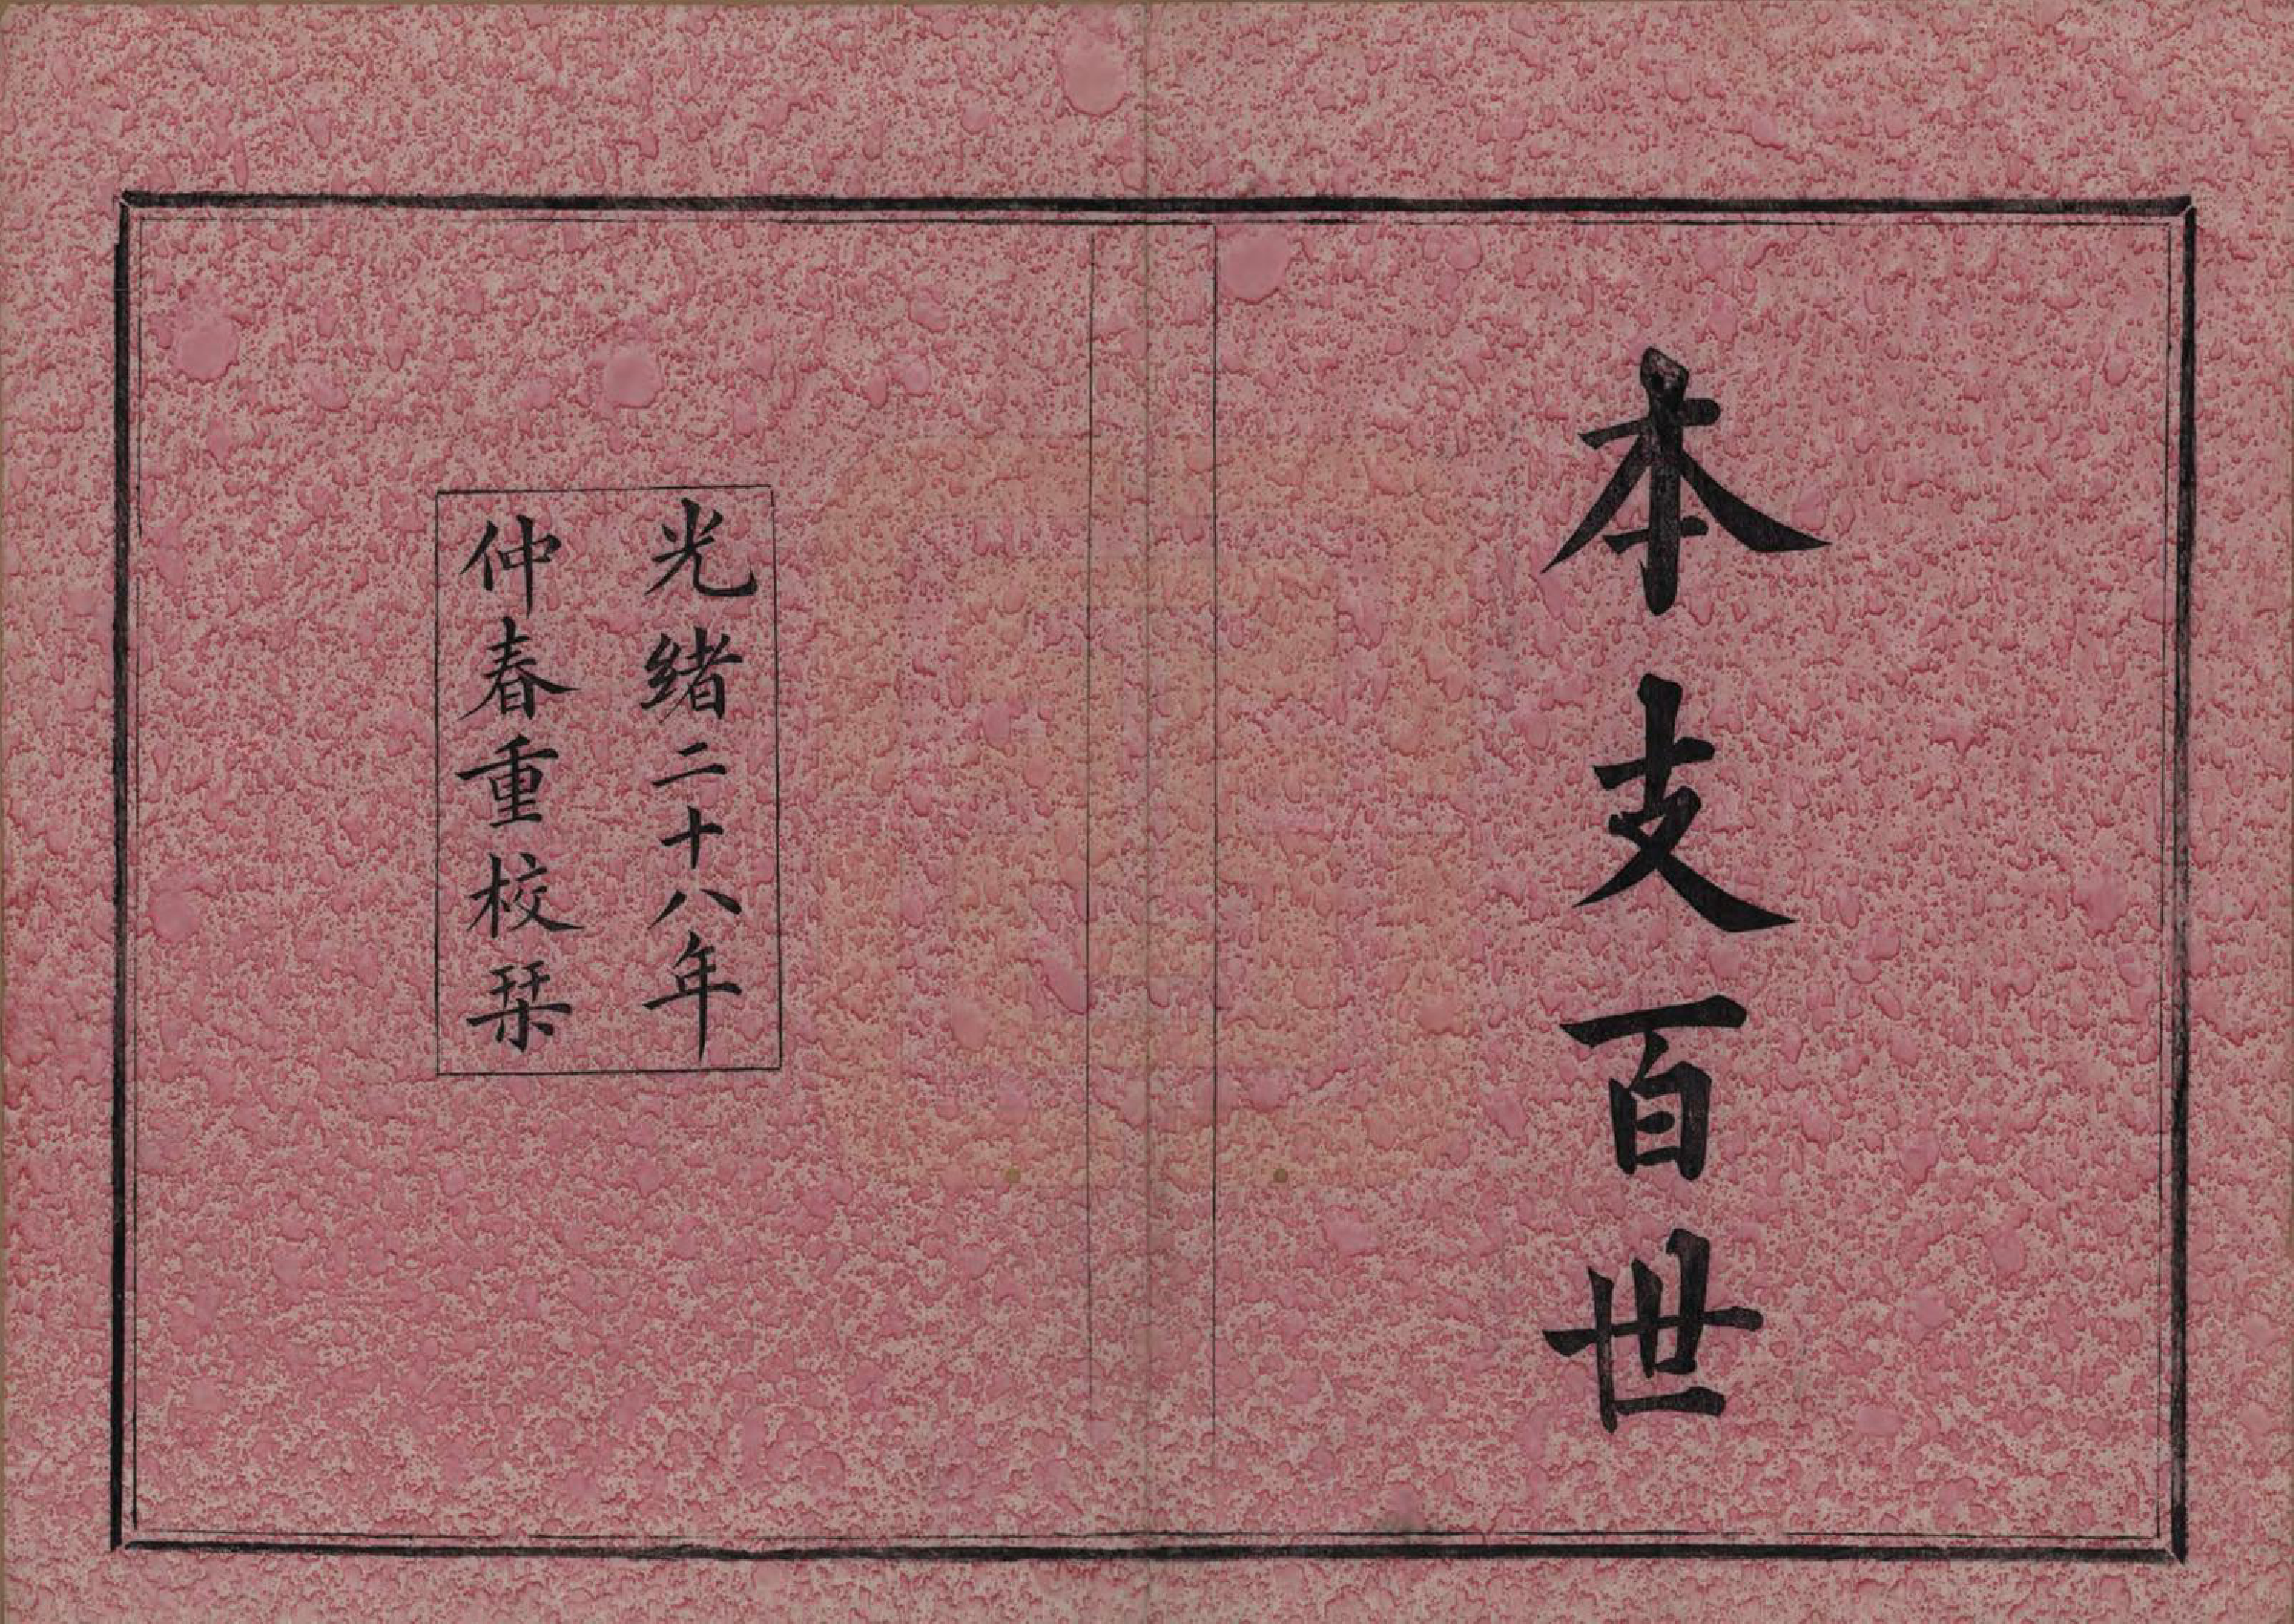 本支百世
光緒二十八年
仲春重校栞